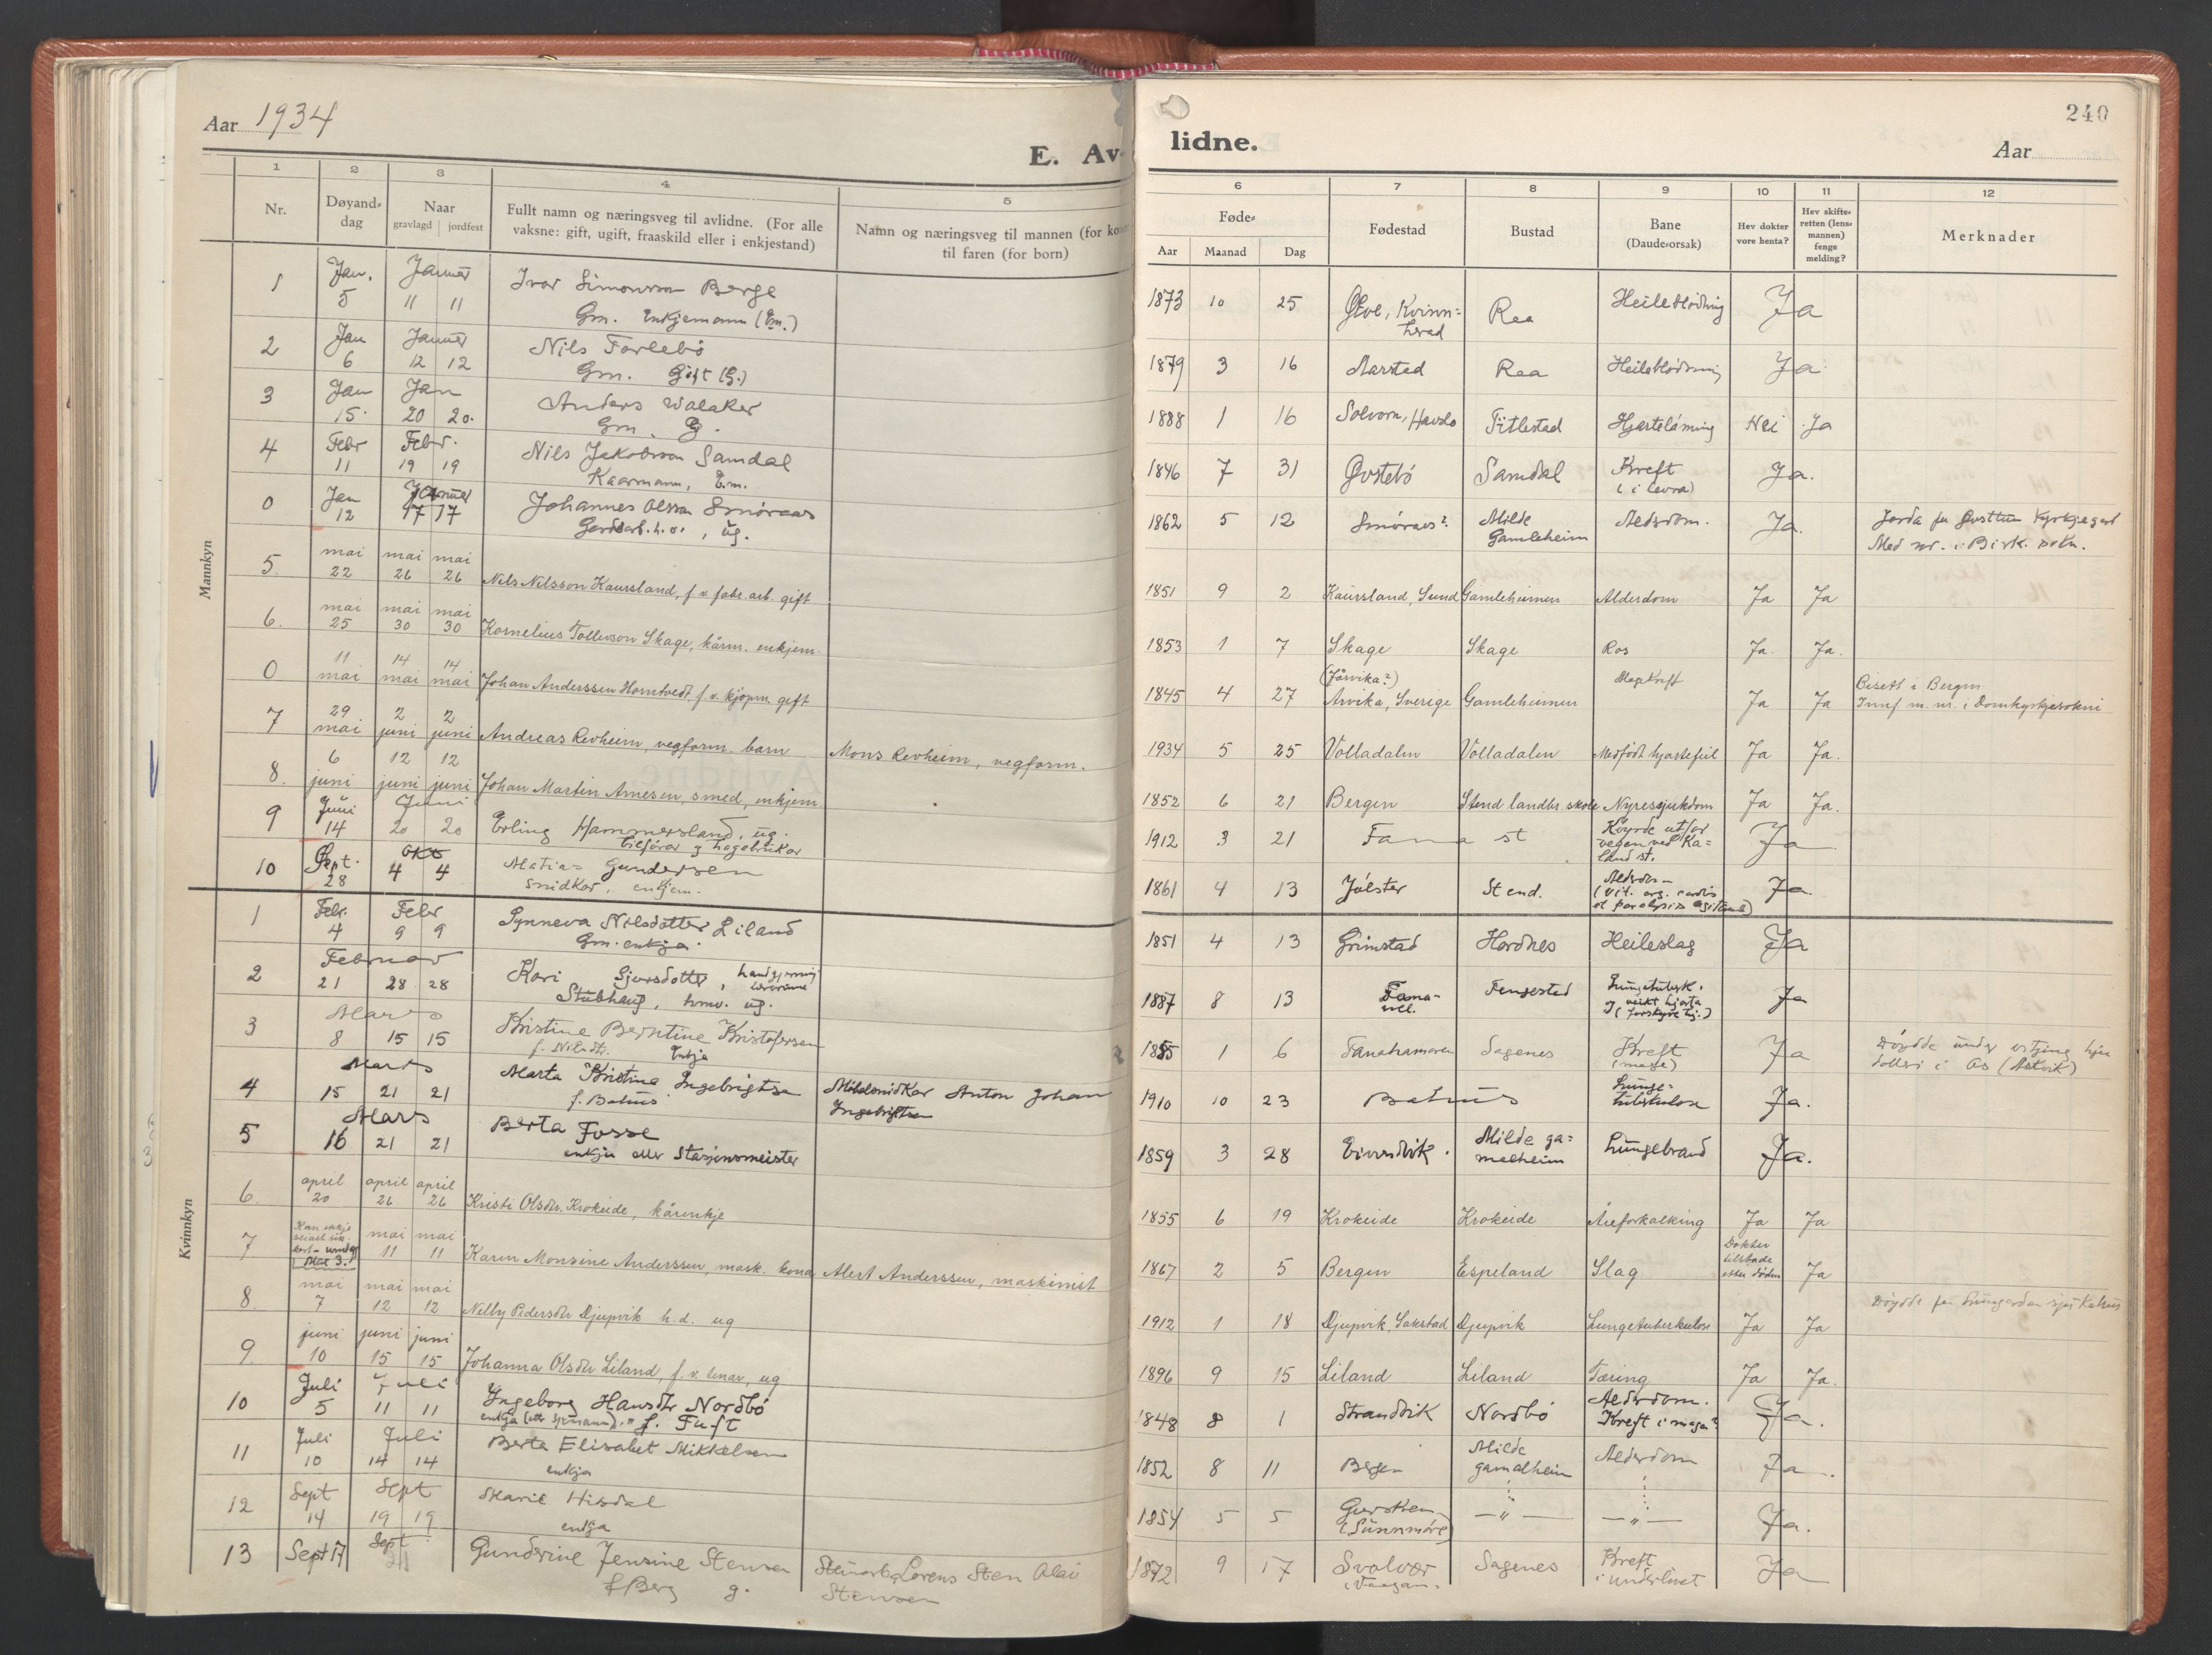 Aar 1934
E. Av-
lidne.
240
Aar
1 2 3 4 5
6 7 8 9 10 11 12
Nr.
Døyand-dag
Naar
gravlagd jordfest
Fullt namn og næringsveg til avlidne. (For alle
vaksne: gift, ugift, fraaskild eller i enkjestand)
Namn og næringsveg til mannen (for ko
til faren (for born)
Føde-
Aar Maanad Dag
Fødestad
Bustad
Bane
(Daude-orsak)
Hev dokter
vore henta?
Hev skifte-
retten (lens-
mannen)
fenge
melding?
Merknader
Mannkyn
1 Jan. 5 Januar 11 11 Ivar Simonsson Berge
Gm. Enkjemann (Em.)
1873 10 25 Ølve, Kvinn-
herad Rea Heilebløding Ja
2 Jan 6 Januar 12 12 Nils Forlebø
Gm. Gift (G.)
1879 3 16 Aarstad Rea Heilebløding Ja
3 Jan 15. Jan 20 20. Anders Walaker
Gm. G.
1888 1 16 Solvorn, Havslo Titlestad Hjartelåming Nei Ja
4 Febr 11 Febr. 19 19 Nils Jakobsson Samdal
Kaarmann, E.m.
1846 7 31 Øvstebø Samdal Kreft
(i levra) Ja.
0 Jan 12 Januar 17 17 Johannes Olsson Smøraas
Gardsarb. h.v., ug.
1862 5 12 Smøraas? Milde
Gamleheim Alderdom. Ja. Jorda på Øvsttun Kyrkjegard
Med nr. i Birk. sokn.
5. mai 22 mai 26 mai 26 Nils Nilsson Kaursland, f.v. fabr. arb. gift
1851 9 2 Kaursland, Sund Gamleheimen Alderdom Ja Ja
6. mai 25 mai 30 mai 30 Kornelius Tollevson Skage, kårm. enkjem.
1853 1 7 Skage Skage Ros Ja. Ja.
0 11 mai 14 mai 14 mai Johan Anderssen Homtvedt f.v. kjøpm. gift
1845 4 27 (Jårvika?)
Arvika, Sverige Gamleheimen Magekreft Ja Ja Bisett i Bergen
Innf m. nr. i Domkyrkjesokni
7 29 mai 2 juni 2 juni Andreas Revheim, vegform. barn Mons Revheim, vegform.
1934 5 25 Volladalen Volladalen Medfødt hjartefeil Ja Ja.
8. 6 juni 12 juni 12 juni Johan Martin Arnesen, smed, enkjem.
1852 6 21 Bergen Stend landbr. skole Nyresjukdom Ja Ja.
9 Juni 14 Juni 20 20 Erling Hammersland, ug.
bilførar og hagebrukar
1912 3 21 Fana st Køyrde utfor
vegen ved Ka-
land st. Ja
10 Sept. 28 Okt 4 4 Matias Gundersen
Snidkar, enkjem.
1861 4 13 Jølster Stend. Alderdom
(Vit. org. cordis
et paralysis agitans) Ja
Kvinnkyn
1 Febr. 4 Febr 9 9 Synneva Nilsdotter Liland
Gm. enkja.
1851 4 13 Grimstad Hordnes Heileslag Ja
2 Februar 21 28 28 Kari Sjursdotter, handgjerning
lærarinne
Stubhaug, hmv. ug.
1887 8 13 Fana-
vll. Fengestad Lungetuberk.
og veikt hjarta Ja
3 Mars 8 15 15 Kristine Berntine Kristofersen
f. Nilsdtr. Enkja
1855 1 6 Fanahamaren Sagenes Kreft
(mage) Ja Døydde under vitjing hjå
dotteri i Os (Askvik)
4 Mars 15 21 21 Marta Kristina Ingebrigtsen
f. Bahus Møbelsnidkar Anton Johan
Ingebrigtsen
1910 10 23 Bahus Lunge-
tuberkulose Ja.
5 Mars 16 21 21 Berta Fosse
enkja etter Stasjonsmeister
1859 3 28 Eivindvik. Milde ga-
meheim Lungebrand Ja.
6. april 20 april 26 april 26 Kristi Olsdtr. Krokeide, kårenkje
1855 6 19 Krokeide Krokeide Åreforkalking Ja Ja
7 Mai 3. mai 11 mai 11 Karen Monsine Anderssen, mask. kona Alert Anderssen, maskinist
1867 2 5 Bergen Espeland Slag Dokter
tilstade
etter døden Ja
8. mai 7 mai 12 mai 12 Nelly Pedersdtr Djupvik h.d. ug
1912 1 18 Djupvik, Sakstad Djupvik Lungetuberkulose Ja Ja Døydde på Lungegarden sjukehus
9. juni 10 juni 15 juni 15 Johanna Olsdtr Liland, f.v. tenar, ug
1896 9 15 Liland Liland Tæring Ja Ja.
10 Juli 5 Juli 11 11 Ingeborg Hansdtr Nordbø
f. Tuft
1848 8 1 Strandvik Nordbø Alderdom.
Kreft i maga? Ja.
11 Juli 10 Juli 14 14 Berta Elisabet Mikkelsen
enkja
1852 8 11 Bergen Milde
gamalheim Alderdom Ja
12 Sept 14 Sept 19 19 Marie Hisdal
enkja
1854 5 5 Gursken
(Sunnmøre) — " — — " — Ja.
13 Sept 17 Sept Gunderine Jensine Stensen
f Berg g. Lorens Sten Olai
Stensen
1872 9 17 Svolvær
Sagenes Kreft
i underlivet Ja